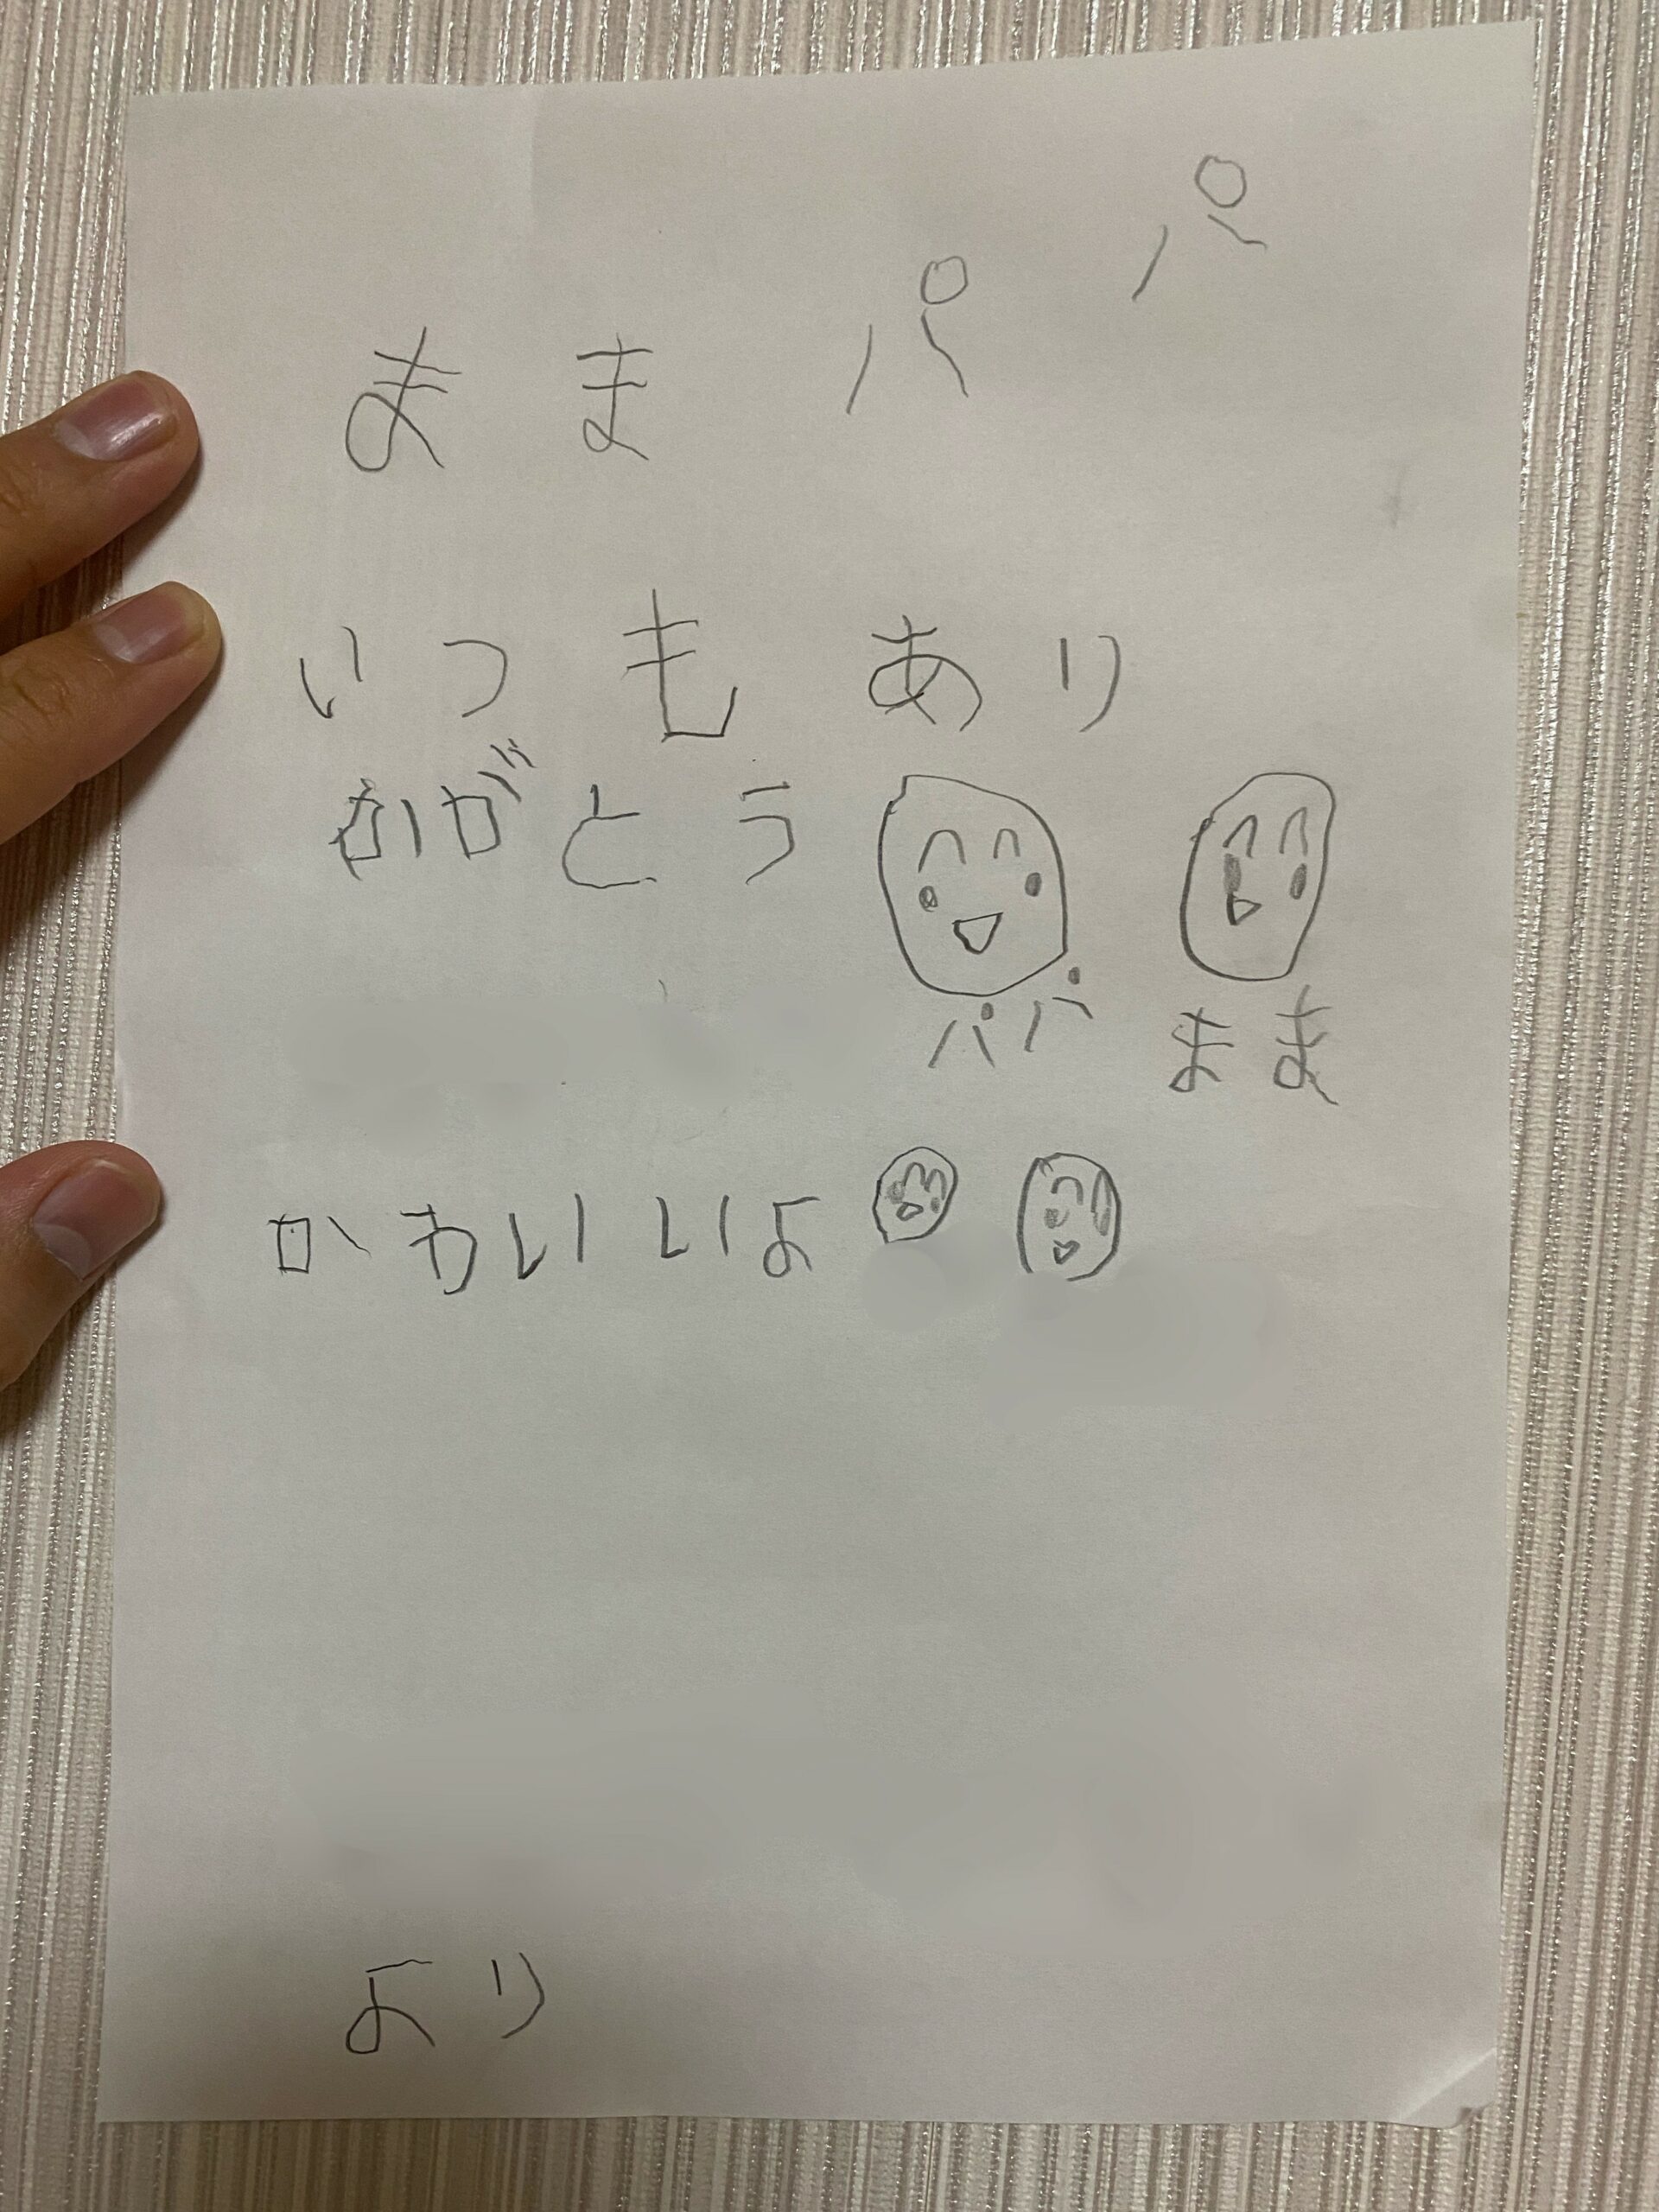 まま パパ
いつもあり
かがとう
パパ まま
かわいいよ
より